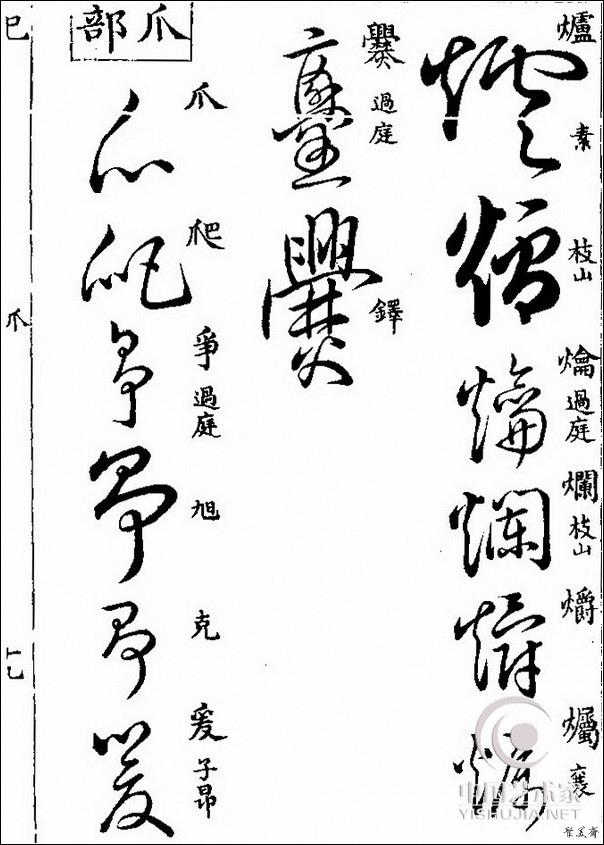 爐
素
枝山
爚
過庭
爛
枝山
爝
爥
襄
爨
過庭
鐸
爪部
爪
爬
爭
過庭
旭
克
爰
子昂
巳
爪
中国艺术家
YISHUJIA.NET